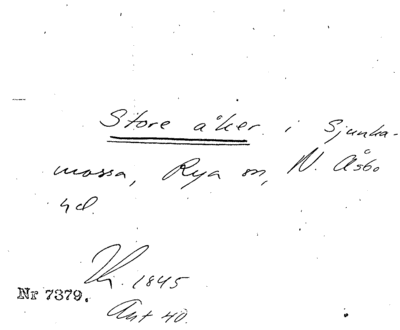 Store åker i Sjunka-
mossa, Rya sn, N. Åsbo
hd.
1845
Nr 7379.
Ant 40.